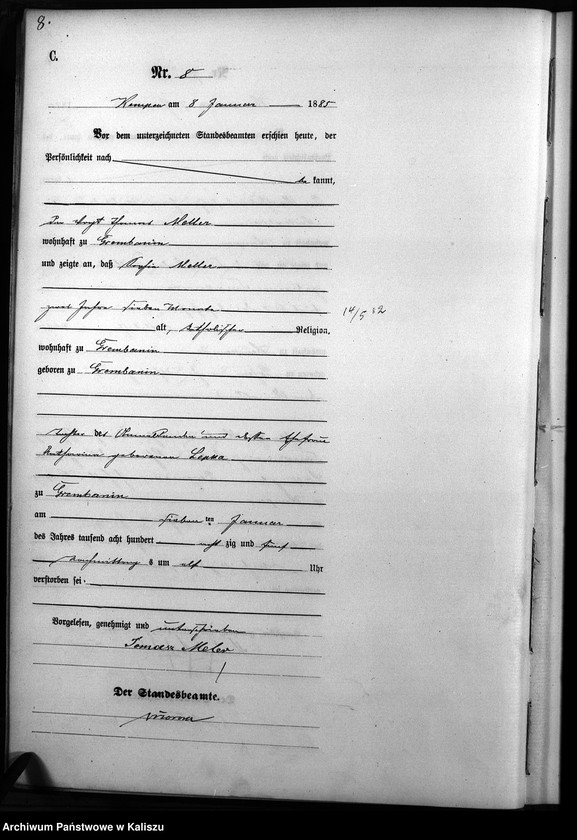 8.
C.
Nr. 8
Kempen am 8 Januar 1885
Vor dem unterzeichneten Standesbeamten erschien heute, der
Persönlichkeit nach
be kannt,
Der Vogt Thomas Meller
wohnhaft zu Grembanin
und zeigte an, daß Meller
zwei Jahre sieben Monate
14/5 12
alt, katholischer Religion,
wohnhaft zu Grembanin
geboren zu Grembanin
Tochter des und dessen Ehefrau
Katharina geborenen
zu Grembanin
am sieben ten Januar
des Jahres tausend acht hundert acht zig und fünf
Nachmittag s um elf Uhr
verstorben sei.
Vorgelesen, genehmigt und unterschrieben
Tomasz Meler
Der Standesbeamte.
Archiwum Państwowe w Kaliszu